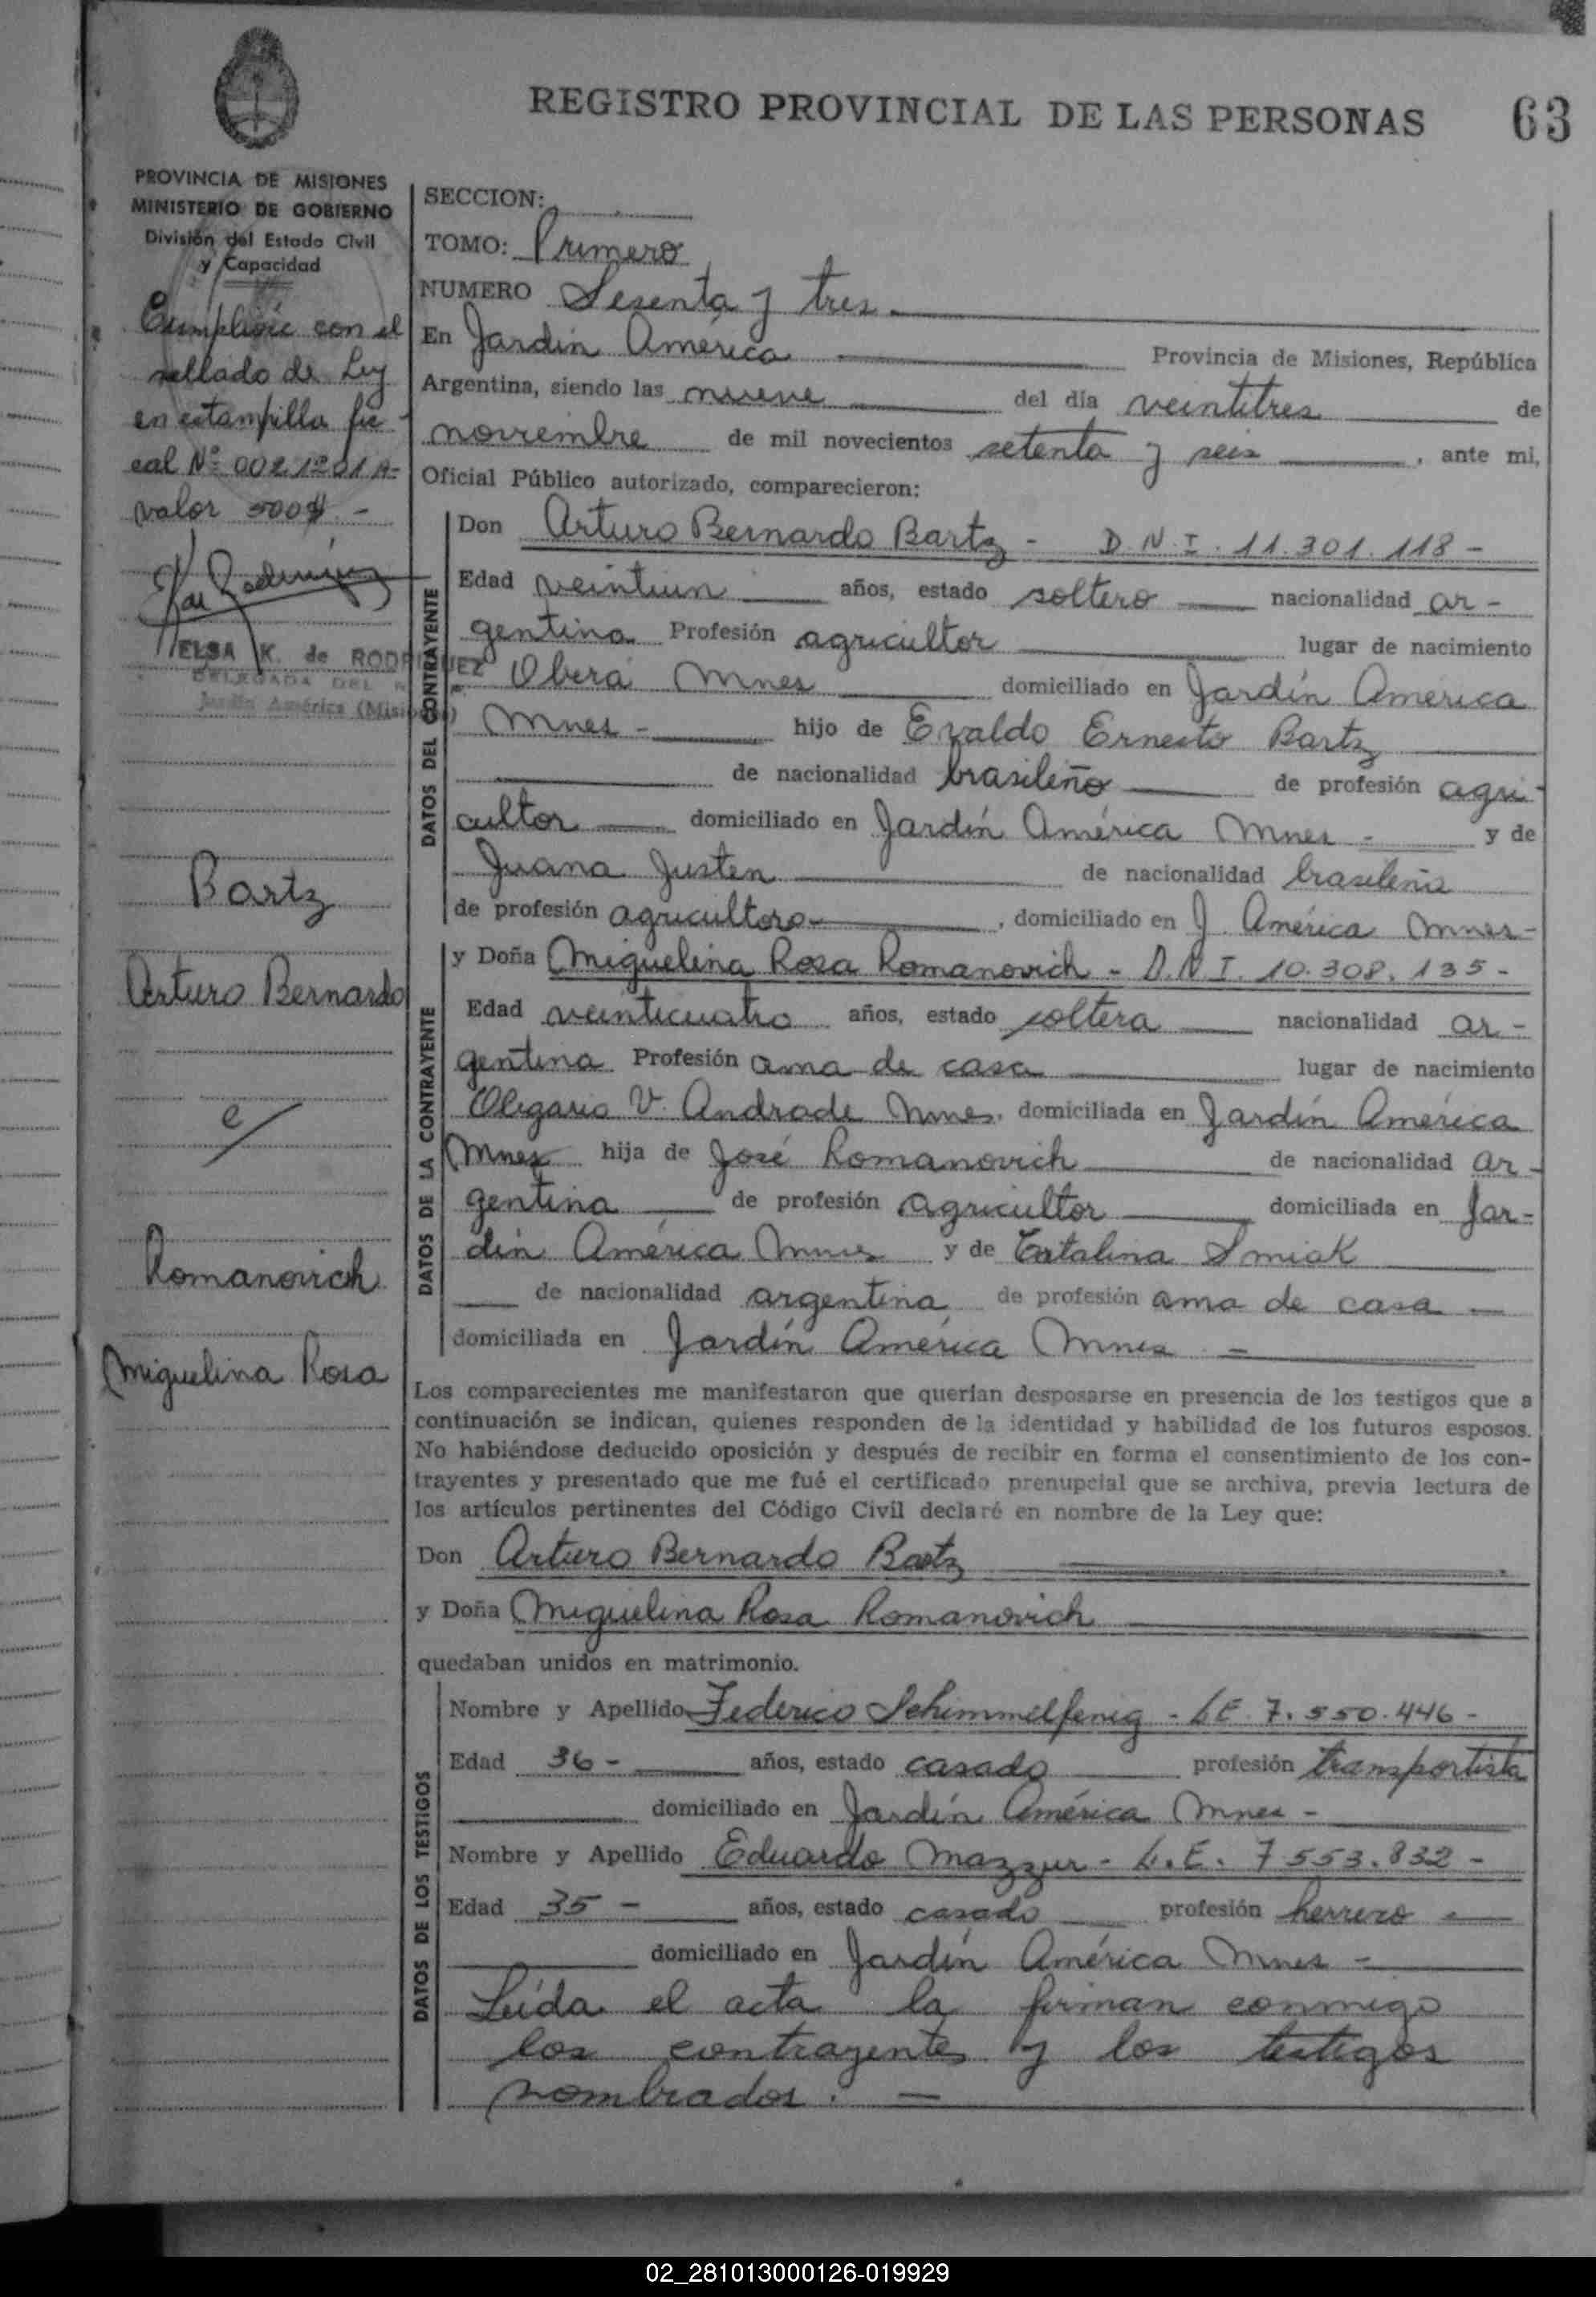 REGISTRO PROVINCIAL DE LAS PERSONAS 63
PROVINCIA DE MISIONES
MINISTERIO DE GOBIERNO
División del Estado Civil
y Capacidad
Cumplióse con el
sellado de Ley
en estampilla fis-
cal Nº
valor 500$ -
ELSA K. de RODRIGUEZ
DELEGADA DEL
Jardín América (Misiones)
Bartz
Arturo Bernardo
c/
Romanovich
Miguelina Rosa
SECCION:
TOMO: Primero
NUMERO Sesenta y tres
En Jardín América Provincia de Misiones, República
Argentina, siendo las nueve del día veintitres de
noviembre de mil novecientos setenta y seis, ante mi,
Oficial Público autorizado, comparecieron:
DATOS DEL CONTRAYENTE
Don Arturo Bernardo Bartz - D.N.I. 11.301.118 -
Edad veintiun años, estado soltero nacionalidad ar-
gentina Profesión agricultor lugar de nacimiento
Oberá Mnes domiciliado en Jardín América
Mnes - hijo de Evaldo Ernesto Bartz
de nacionalidad brasileño de profesión agri-
cultor domiciliado en Jardín América Mnes - y de
Juana Justen de nacionalidad brasileña
de profesión agricultora, domiciliado en J. América Mnes -
DATOS DE LA CONTRAYENTE
y Doña Miguelina Rosa Romanovich - D.N.I. 10.308.135 -
Edad veinticuatro años, estado soltera nacionalidad ar-
gentina Profesión ama de casa lugar de nacimiento
Olegario V. Andrade Mnes. domiciliada en Jardín América
Mnes hija de José Romanovich de nacionalidad ar-
gentina de profesión agricultor domiciliada en Jar-
dín América Mnes y de Catalina Smiak
de nacionalidad argentina de profesión ama de casa
domiciliada en Jardín América Mnes -
Los comparecientes me manifestaron que querían desposarse en presencia de los testigos que a
continuación se indican, quienes responden de la identidad y habilidad de los futuros esposos.
No habiéndose deducido oposición y después de recibir en forma el consentimiento de los con-
trayentes y presentado que me fué el certificado prenupcial que se archiva, previa lectura de
los artículos pertinentes del Código Civil declaré en nombre de la Ley que:
Don Arturo Bernardo Bartz
y Doña Miguelina Rosa Romanovich
quedaban unidos en matrimonio.
DATOS DE LOS TESTIGOS
Nombre y Apellido Federico Schimmelfenig - L.E. 7.550.446 -
Edad 36 - años, estado casado profesión transportista
domiciliado en Jardín América Mnes -
Nombre y Apellido Eduardo Mazzur - L.E. 7.553.832 -
Edad 35 - años, estado casado profesión herrero -
domiciliado en Jardín América Mnes -
Leída el acta la firman conmigo
los contrayentes y los testigos
nombrados. -
02_281013000126-019929